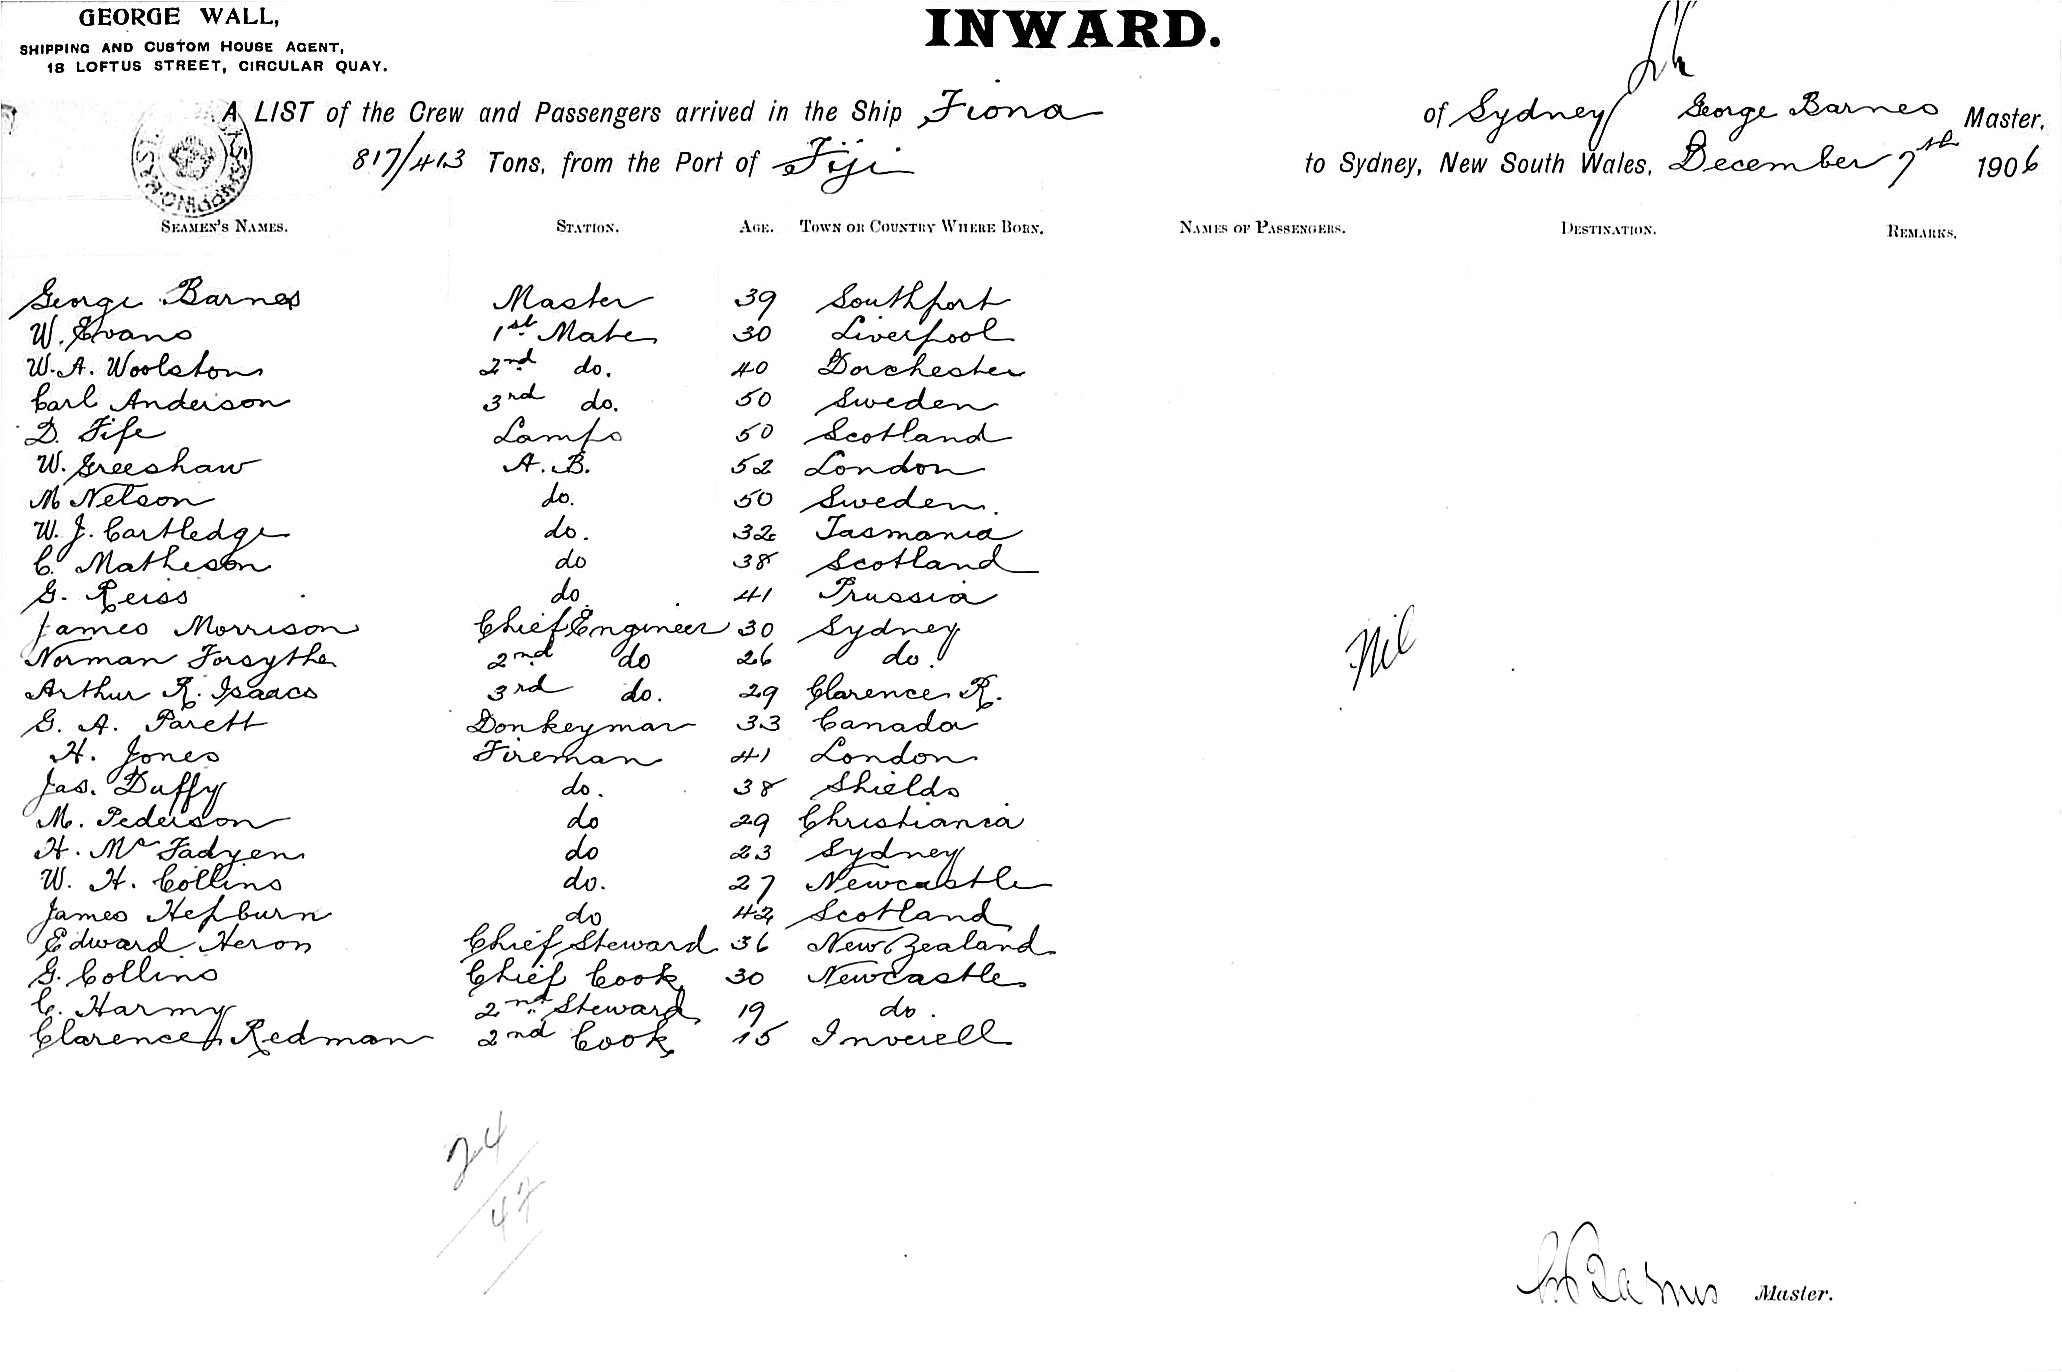 GEORGE WALL,
SHIPPING AND CUSTOM HOUSE AGENT,
18 LOFTUS STREET, CIRCULAR QUAY.
INWARD.
A LIST of the Crew and Passengers arrived in the Ship Fiona of Sydney George Barnes Master,
817/413 Tons, from the Port of Fiji to Sydney, New South Wales, December 7th 1906
SEAMEN'S NAMES. STATION. AGE. TOWN OR COUNTRY WHERE BORN. NAMES OF PASSENGERS. DESTINATION. REMARKS.
George Barnes Master 39 Southport
W. Evans 1st Mate 30 Liverpool
W. A. Woolston 2nd do. 40 Dorchester
Carl Anderson 3rd do. 50 Sweden
D. Fife Lamps 50 Scotland
W. Greeshaw A. B. 52 London
M Nelson do. 50 Sweden.
W. J. Cartledge do. 32 Tasmania
C. Matheson do 38 Scotland
G. Reiss do. 41 Prussia
James Morrison Chief Engineer 30 Sydney
Norman Forsythe 2nd do 26 do.
Nil
Arthur R. Isaacs 3rd do. 29 Clarence R.
G. A. Parett Donkeyman 33 Canada
H. Jones Fireman 41 London
Jas. Duffy do. 38 Shields
M. Pederson do 29 Christiania
H. Mc Fadyen do 23 Sydney
W. H. Collins do. 27 Newcastle
James Hepburn do 42 Scotland
Edward Heron Chief Steward 36 New Zealand
G. Collins Chief Cook 30 Newcastle
C. Harmy 2nd Steward 19 do.
Clarence Redman 2nd Cook 15 Inverell
24
47
Barnes Master.